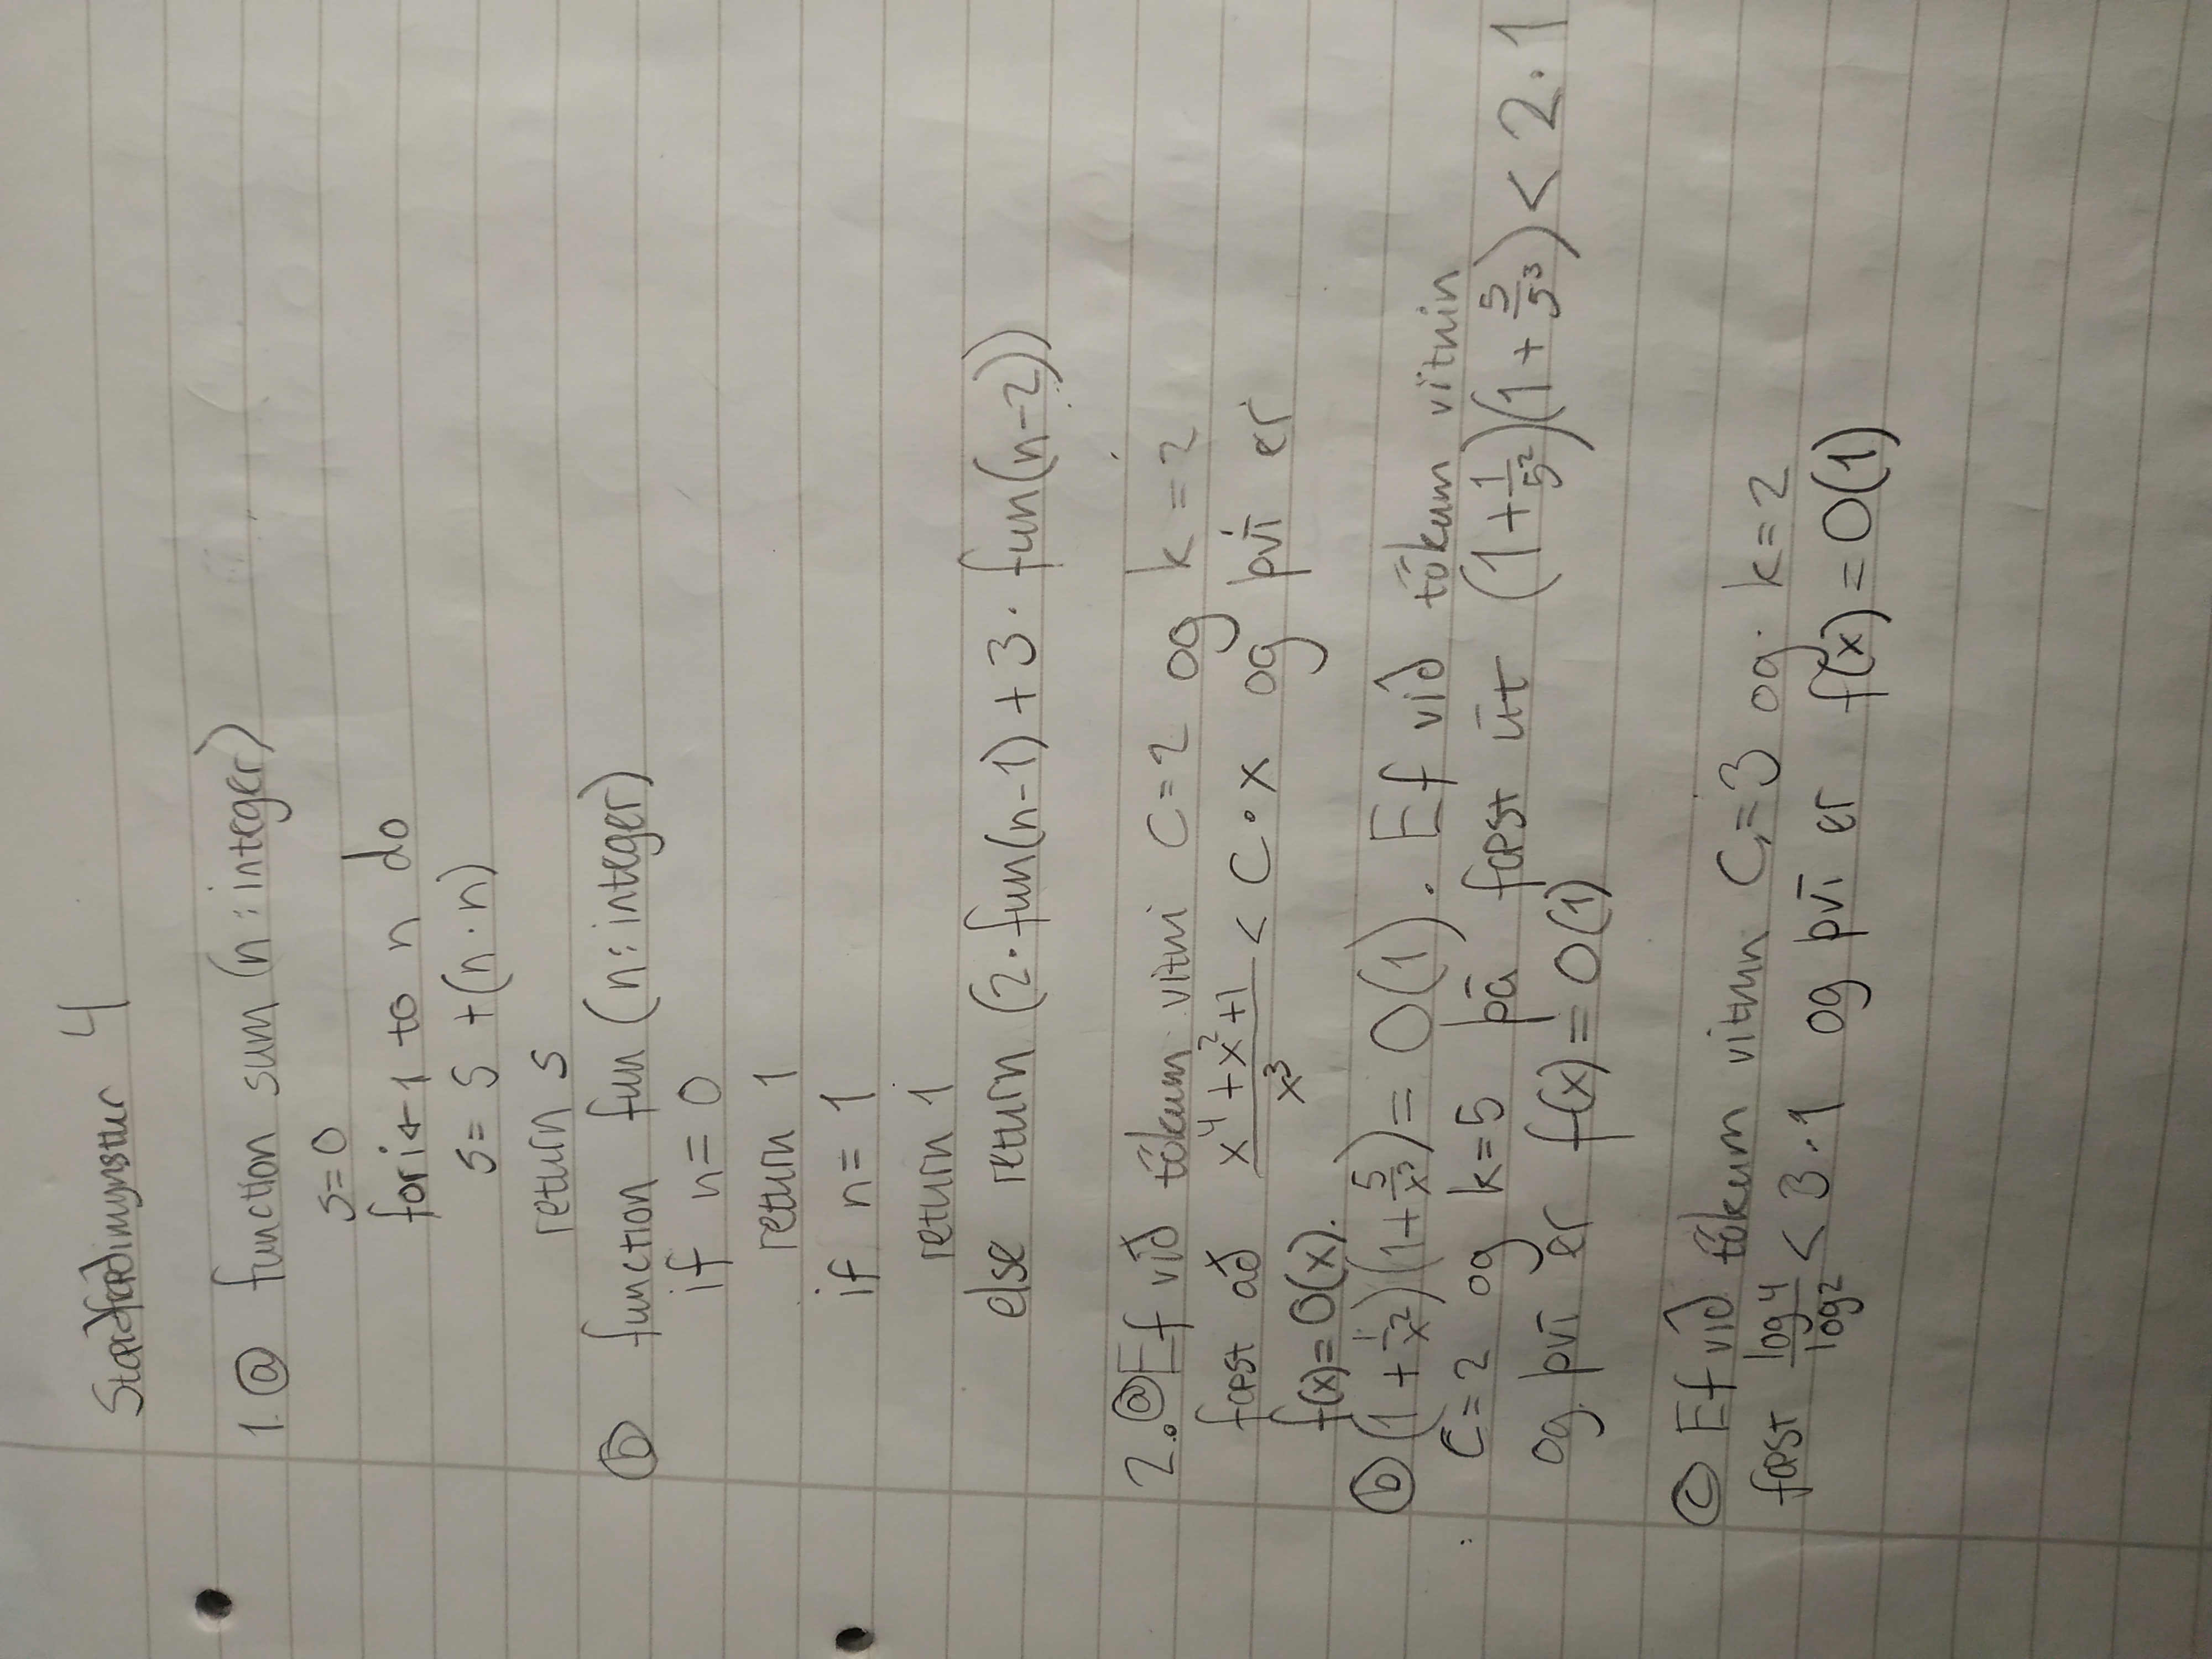 Stærðfræðimynstur 4
1. ⓐ function sum (n : integer)
s = 0
for i ← 1 to n do
s = s + (n · n)
return s
ⓑ function fun (n : integer)
if n = 0
return 1
if n = 1
return 1
else return (2 · fun(n-1) + 3 · fun(n-2))
2. ⓐ Ef við tökum vitni C = 2 og k = 2
fæst að (x⁴ + x² + 1)/x³ < C · x og því er
f(x) = O(x).
ⓑ (1 + 1/x²)(1 + 5/x³) = O(1). Ef við tökum vitnin
C = 2 og k = 5 þá fæst út (1 + 1/5²)(1 + 5/5³) < 2 · 1
og því er f(x) = O(1)
ⓒ Ef við tökum vitnin C = 3 og k = 2
fæst log 4/log 2 < 3 · 1 og því er f(x) = O(1)